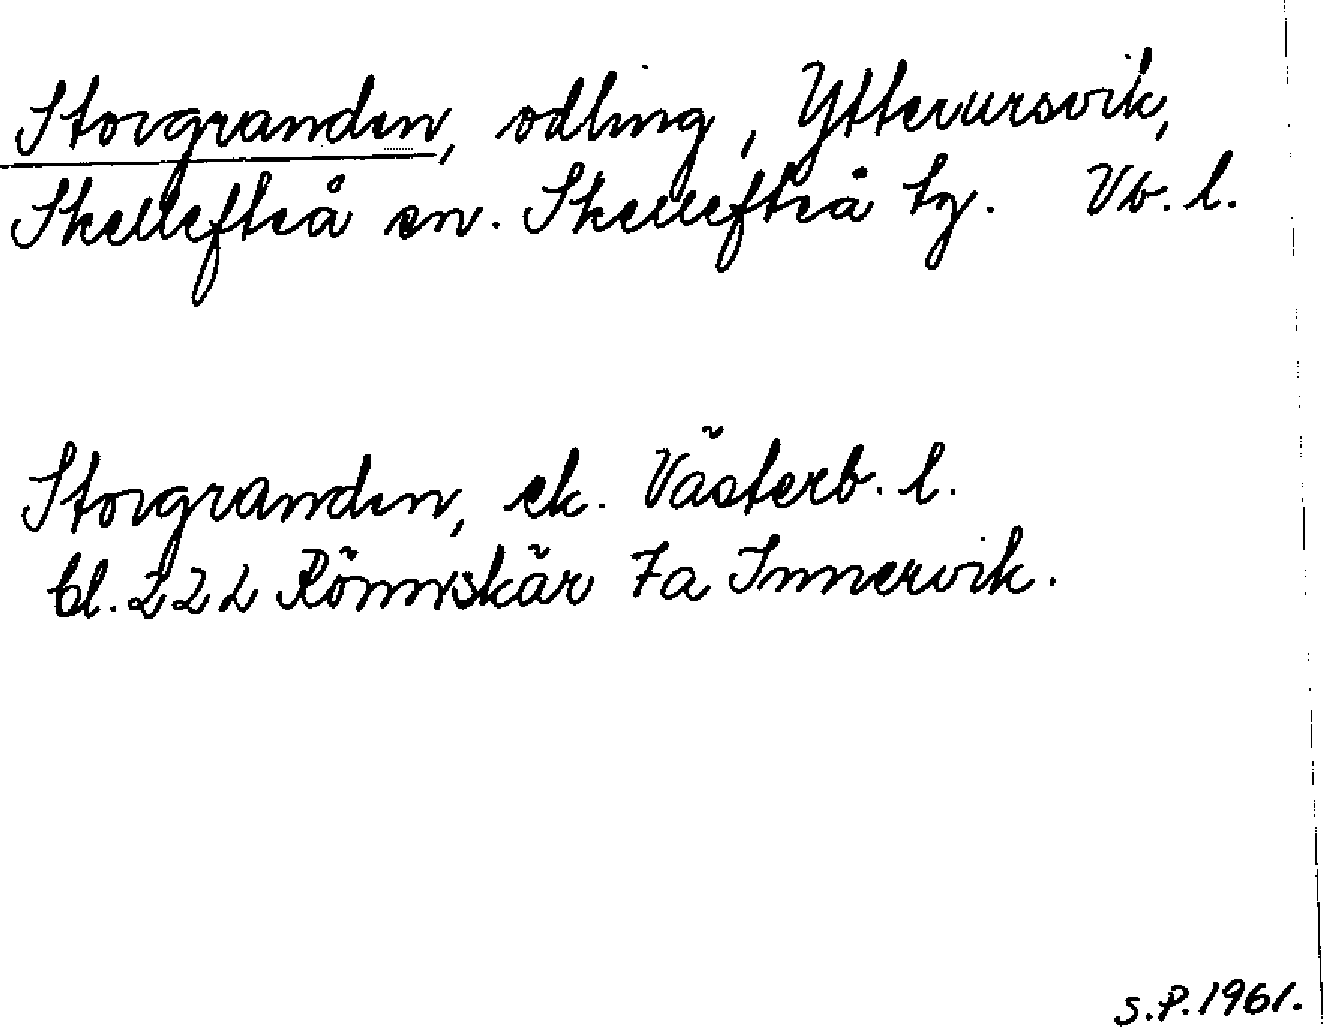 Storgranden, odling, Yttervursvik,
Skellefteå sn. Skellefteå tg. Vb. l.
Storgranden, ek. Västerb. l.
bl. 222 Rönnskär 7a Innervik.
S.P. 1961.